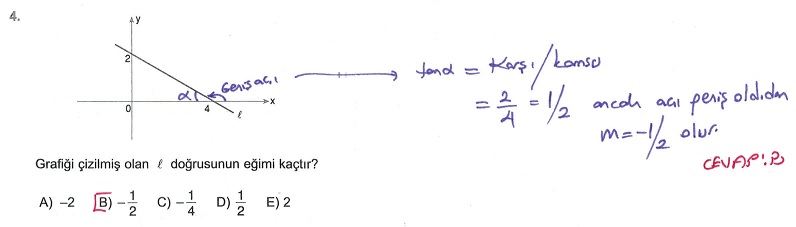 4.
y
2
α
Geniş açı
0
4
x
ℓ
tanα = Karşı/komşu
= 2/4 = 1/2 ancak açı geniş olduğundan
m = -1/2 olur.
CEVAP: B
Grafiği çizilmiş olan ℓ doğrusunun eğimi kaçtır?
A) –2 B) –1/2 C) –1/4 D) 1/2 E) 2